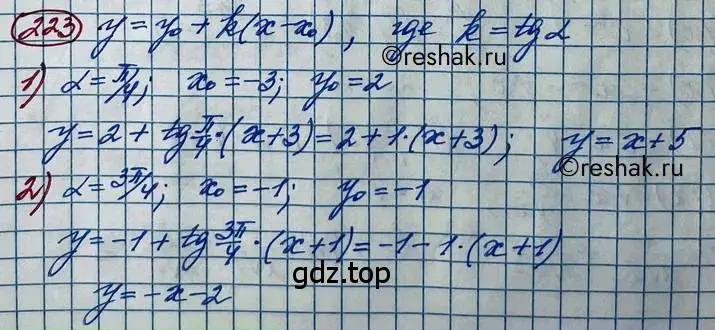 223 y = y₀ + k(x-x₀), где k = tg α
©reshak.ru
1) α = π/4; x₀ = -3; y₀ = 2
y = 2 + tg π/4 · (x+3) = 2 + 1·(x+3); y = x+5
©reshak.ru
2) α = 3π/4; x₀ = -1; y₀ = -1
y = -1 + tg 3π/4 · (x+1) = -1 - 1·(x+1)
gdz.top
y = -x-2